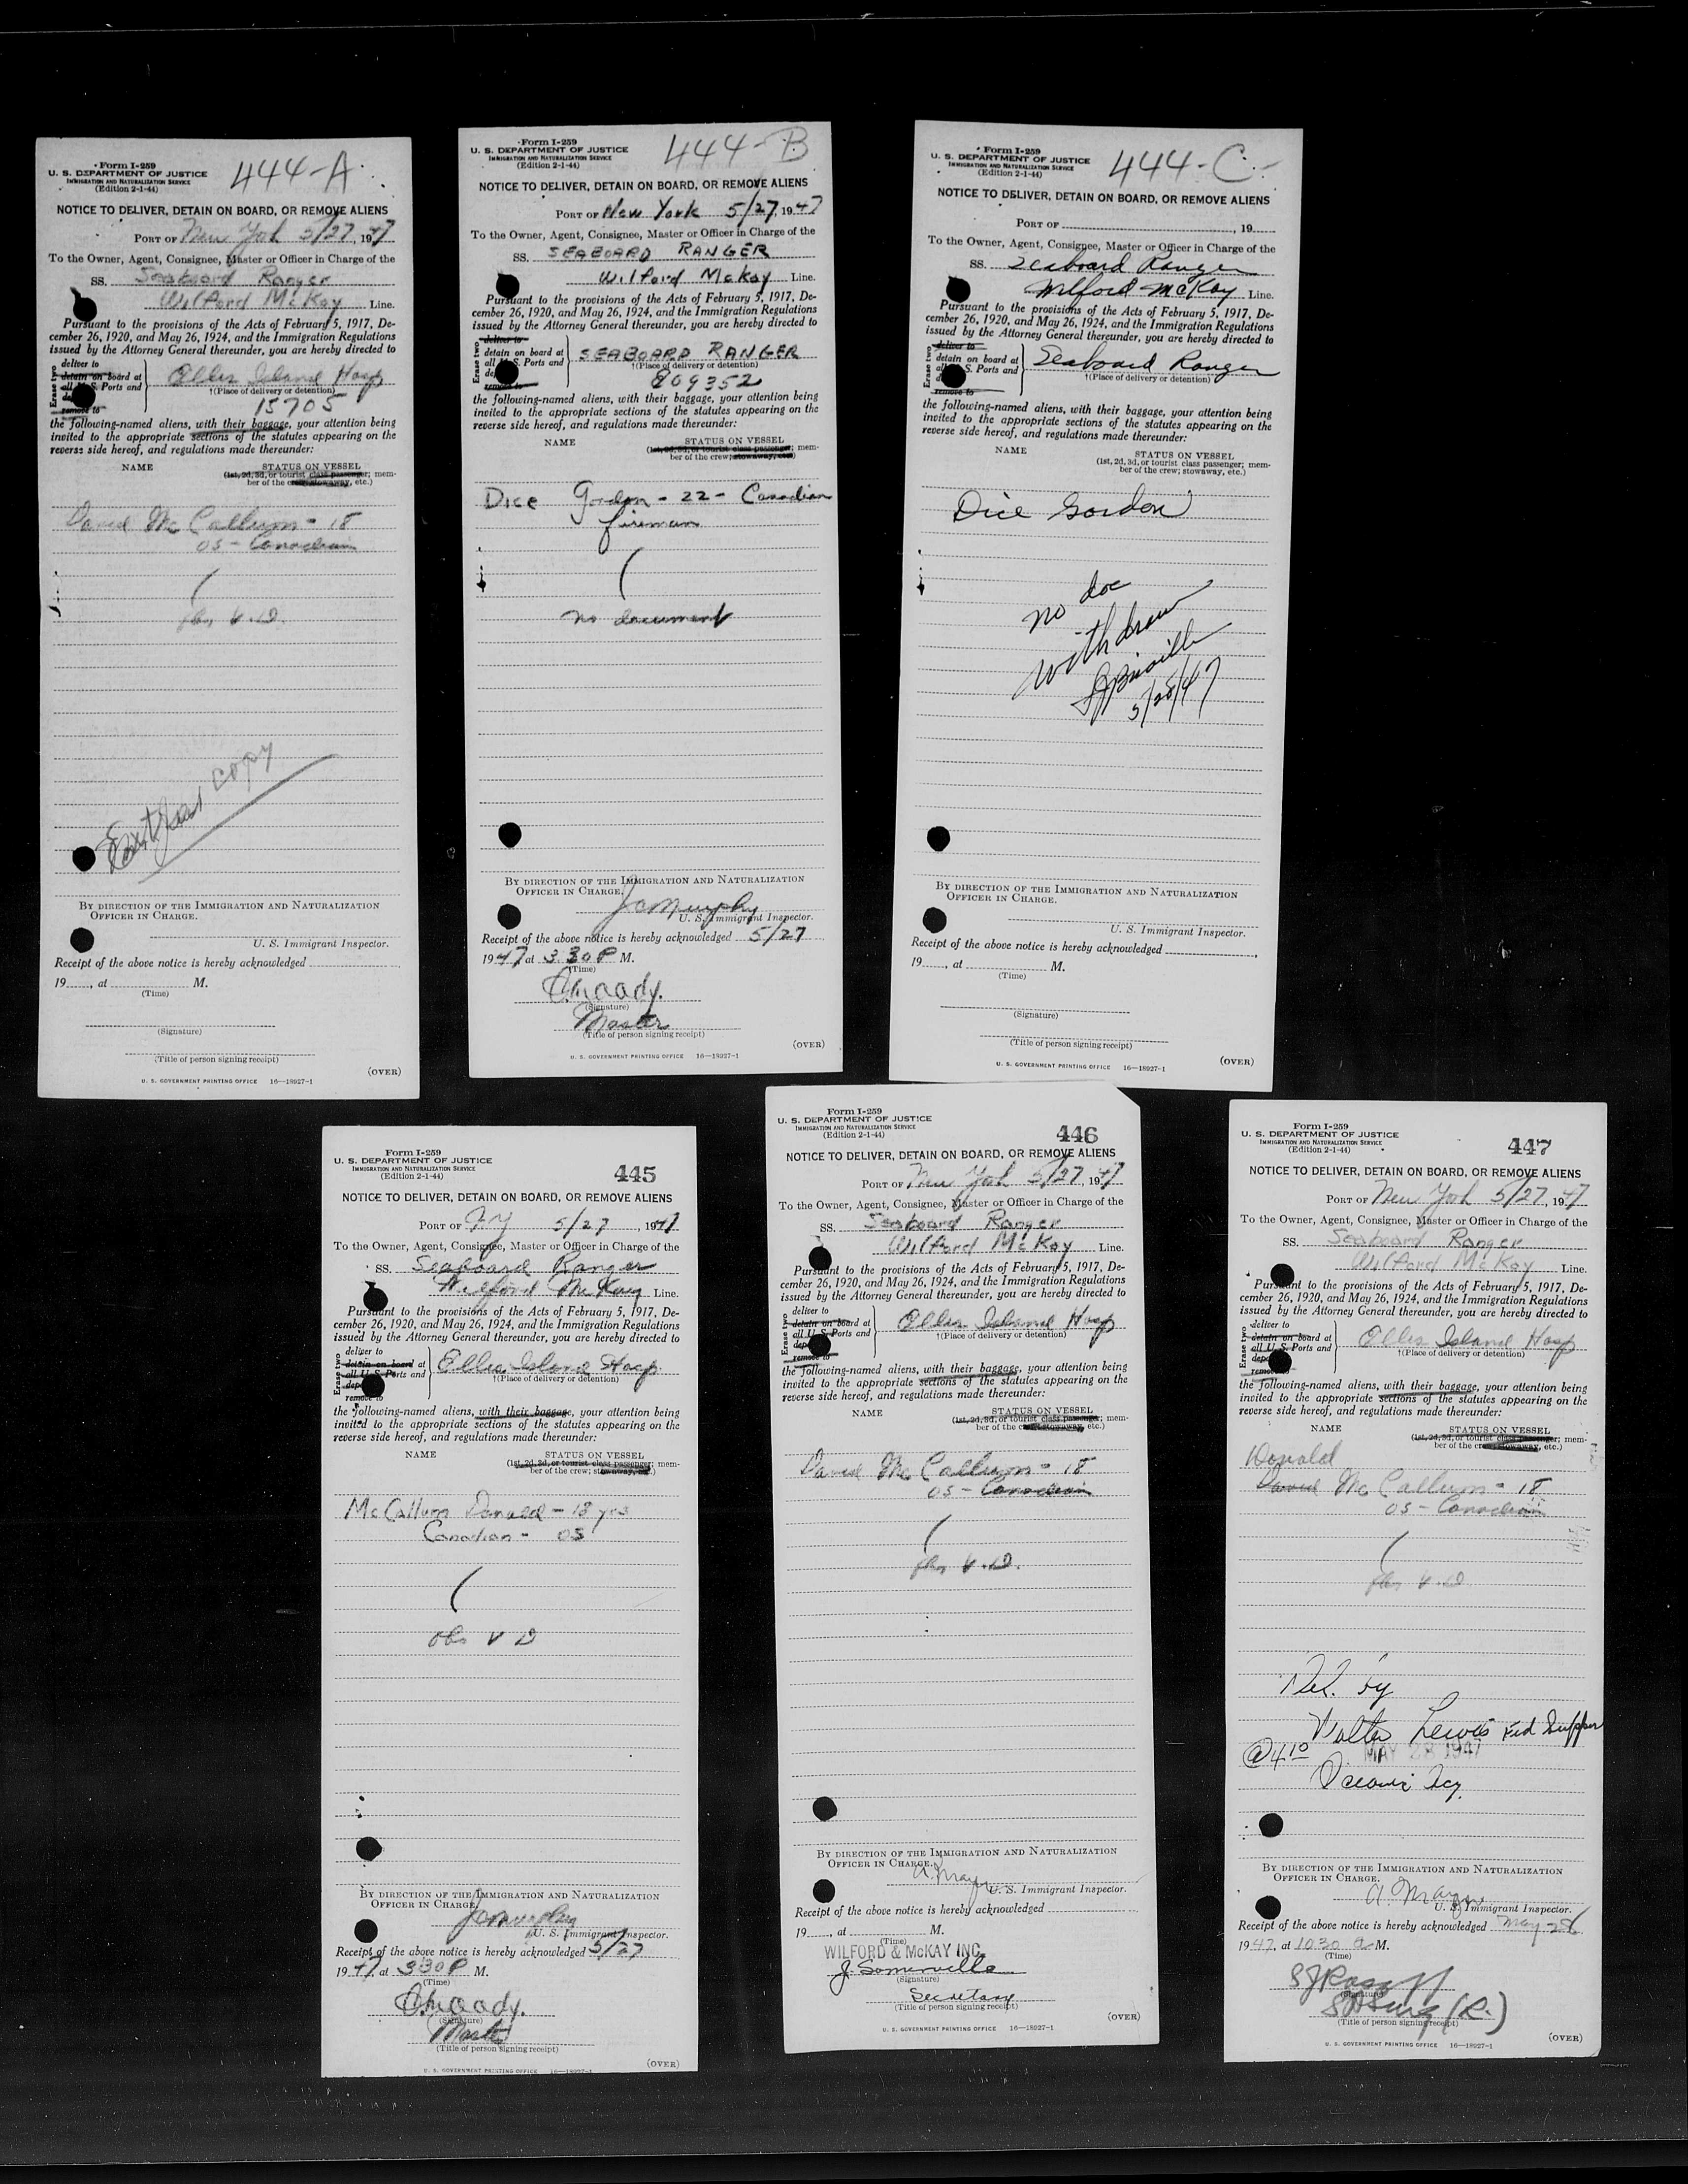 Form I-259
U. S. DEPARTMENT OF JUSTICE
IMMIGRATION AND NATURALIZATION SERVICE
(Edition 2-1-44)
444-A
NOTICE TO DELIVER, DETAIN ON BOARD, OR REMOVE ALIENS
PORT OF New York 5/27, 1947
To the Owner, Agent, Consignee, Master or Officer in Charge of the
SS. Seaboard Ranger
Wilford McKay Line.
Pursuant to the provisions of the Acts of February 5, 1917, De-
cember 26, 1920, and May 26, 1924, and the Immigration Regulations
issued by the Attorney General thereunder, you are hereby directed to
Erase two
deliver to
detain on board at
all U. S. Ports and
remove to
Ellis Island Hosp
†(Place of delivery or detention)
15705
the following-named aliens, with their baggage, your attention being
invited to the appropriate sections of the statutes appearing on the
reverse side hereof, and regulations made thereunder:
NAME STATUS ON VESSEL
(1st, 2d, 3d, or tourist class passenger; mem-
ber of the crew; stowaway, etc.)
David McCallum - 18
OS - Canadian
obs V.D.
copy
BY DIRECTION OF THE IMMIGRATION AND NATURALIZATION
OFFICER IN CHARGE.
U. S. Immigrant Inspector.
Receipt of the above notice is hereby acknowledged
19 , at M.
(Time)
(Signature)
(Title of person signing receipt)
(OVER)
U. S. GOVERNMENT PRINTING OFFICE 16—18927-1
Form I-259
U. S. DEPARTMENT OF JUSTICE
IMMIGRATION AND NATURALIZATION SERVICE
(Edition 2-1-44)
444-B
NOTICE TO DELIVER, DETAIN ON BOARD, OR REMOVE ALIENS
PORT OF New York 5/27, 1947
To the Owner, Agent, Consignee, Master or Officer in Charge of the
SS. SEABOARD RANGER
Wilford McKay Line.
Pursuant to the provisions of the Acts of February 5, 1917, De-
cember 26, 1920, and May 26, 1924, and the Immigration Regulations
issued by the Attorney General thereunder, you are hereby directed to
Erase two
deliver to
detain on board at
all U. S. Ports and
remove to
SEABOARD RANGER
†(Place of delivery or detention)
809352
the following-named aliens, with their baggage, your attention being
invited to the appropriate sections of the statutes appearing on the
reverse side hereof, and regulations made thereunder:
NAME STATUS ON VESSEL
(1st, 2d, 3d, or tourist class passenger; mem-
ber of the crew; stowaway, etc.)
Dice Gordon - 22 - Canadian
fireman
no document
BY DIRECTION OF THE IMMIGRATION AND NATURALIZATION
OFFICER IN CHARGE.
JC Murphy
U. S. Immigrant Inspector.
Receipt of the above notice is hereby acknowledged 5/27
1947 at 3 30 P M.
(Time)
C. Moody.
(Signature)
Master
(Title of person signing receipt)
(OVER)
U. S. GOVERNMENT PRINTING OFFICE 16—18927-1
Form I-259
U. S. DEPARTMENT OF JUSTICE
IMMIGRATION AND NATURALIZATION SERVICE
(Edition 2-1-44)
444-C
NOTICE TO DELIVER, DETAIN ON BOARD, OR REMOVE ALIENS
PORT OF , 19
To the Owner, Agent, Consignee, Master or Officer in Charge of the
SS. Seaboard Ranger
Wilford McKay Line.
Pursuant to the provisions of the Acts of February 5, 1917, De-
cember 26, 1920, and May 26, 1924, and the Immigration Regulations
issued by the Attorney General thereunder, you are hereby directed to
Erase two
deliver to
detain on board at
all U. S. Ports and
remove to
Seaboard Ranger
†(Place of delivery or detention)
the following-named aliens, with their baggage, your attention being
invited to the appropriate sections of the statutes appearing on the
reverse side hereof, and regulations made thereunder:
NAME STATUS ON VESSEL
(1st, 2d, 3d, or tourist class passenger; mem-
ber of the crew; stowaway, etc.)
Dice Gordon
no doc
withdrawn
5/28/47
BY DIRECTION OF THE IMMIGRATION AND NATURALIZATION
OFFICER IN CHARGE.
U. S. Immigrant Inspector.
Receipt of the above notice is hereby acknowledged
19 , at M.
(Time)
(Signature)
(Title of person signing receipt)
(OVER)
U. S. GOVERNMENT PRINTING OFFICE 16—18927-1
Form I-259
U. S. DEPARTMENT OF JUSTICE
IMMIGRATION AND NATURALIZATION SERVICE
(Edition 2-1-44)
445
NOTICE TO DELIVER, DETAIN ON BOARD, OR REMOVE ALIENS
PORT OF N.Y 5/27, 1947
To the Owner, Agent, Consignee, Master or Officer in Charge of the
SS. Seaboard Ranger
Wilford McKay Line.
Pursuant to the provisions of the Acts of February 5, 1917, De-
cember 26, 1920, and May 26, 1924, and the Immigration Regulations
issued by the Attorney General thereunder, you are hereby directed to
Erase two
deliver to
detain on board at
all U. S. Ports and
remove to
Ellis Island Hosp.
†(Place of delivery or detention)
the following-named aliens, with their baggage, your attention being
invited to the appropriate sections of the statutes appearing on the
reverse side hereof, and regulations made thereunder:
NAME STATUS ON VESSEL
(1st, 2d, 3d, or tourist class passenger; mem-
ber of the crew; stowaway, etc.)
McCallum Donald - 18 yrs
Canadian - OS
obs V D
BY DIRECTION OF THE IMMIGRATION AND NATURALIZATION
OFFICER IN CHARGE.
JC Murphy
U. S. Immigrant Inspector.
Receipt of the above notice is hereby acknowledged 5/27
1947 at 3 30 P M.
(Time)
C. Moody.
(Signature)
Master
(Title of person signing receipt)
(OVER)
U. S. GOVERNMENT PRINTING OFFICE 16—18927-1
Form I-259
U. S. DEPARTMENT OF JUSTICE
IMMIGRATION AND NATURALIZATION SERVICE
(Edition 2-1-44)
446
NOTICE TO DELIVER, DETAIN ON BOARD, OR REMOVE ALIENS
PORT OF New York 5/27, 1947
To the Owner, Agent, Consignee, Master or Officer in Charge of the
SS. Seaboard Ranger
Wilford McKay Line.
Pursuant to the provisions of the Acts of February 5, 1917, De-
cember 26, 1920, and May 26, 1924, and the Immigration Regulations
issued by the Attorney General thereunder, you are hereby directed to
Erase two
deliver to
detain on board at
all U. S. Ports and
remove to
Ellis Island Hosp
†(Place of delivery or detention)
the following-named aliens, with their baggage, your attention being
invited to the appropriate sections of the statutes appearing on the
reverse side hereof, and regulations made thereunder:
NAME STATUS ON VESSEL
(1st, 2d, 3d, or tourist class passenger; mem-
ber of the crew; stowaway, etc.)
David McCallum - 18
OS - Canadian
obs V.D.
BY DIRECTION OF THE IMMIGRATION AND NATURALIZATION
OFFICER IN CHARGE.
U. S. Immigrant Inspector.
Receipt of the above notice is hereby acknowledged
19 , at M.
(Time)
WILFORD & McKAY INC.
J. Somerville
(Signature)
Secretary
(Title of person signing receipt)
(OVER)
U. S. GOVERNMENT PRINTING OFFICE 16—18927-1
Form I-259
U. S. DEPARTMENT OF JUSTICE
IMMIGRATION AND NATURALIZATION SERVICE
(Edition 2-1-44)
447
NOTICE TO DELIVER, DETAIN ON BOARD, OR REMOVE ALIENS
PORT OF New York 5/27, 1947
To the Owner, Agent, Consignee, Master or Officer in Charge of the
SS. Seaboard Ranger
Wilford McKay Line.
Pursuant to the provisions of the Acts of February 5, 1917, De-
cember 26, 1920, and May 26, 1924, and the Immigration Regulations
issued by the Attorney General thereunder, you are hereby directed to
Erase two
deliver to
detain on board at
all U. S. Ports and
remove to
Ellis Island Hosp
†(Place of delivery or detention)
the following-named aliens, with their baggage, your attention being
invited to the appropriate sections of the statutes appearing on the
reverse side hereof, and regulations made thereunder:
NAME STATUS ON VESSEL
(1st, 2d, 3d, or tourist class passenger; mem-
ber of the crew; stowaway, etc.)
Donald
David McCallum - 18
OS - Canadian
obs V.D.
Del. by
Walter Lewis
@ 4 10 MAY 28 1947
BY DIRECTION OF THE IMMIGRATION AND NATURALIZATION
OFFICER IN CHARGE.
U. S. Immigrant Inspector.
Receipt of the above notice is hereby acknowledged May 28
1947, at 10 30 a M.
(Time)
(Signature)
(Title of person signing receipt)
(OVER)
U. S. GOVERNMENT PRINTING OFFICE 16—18927-1